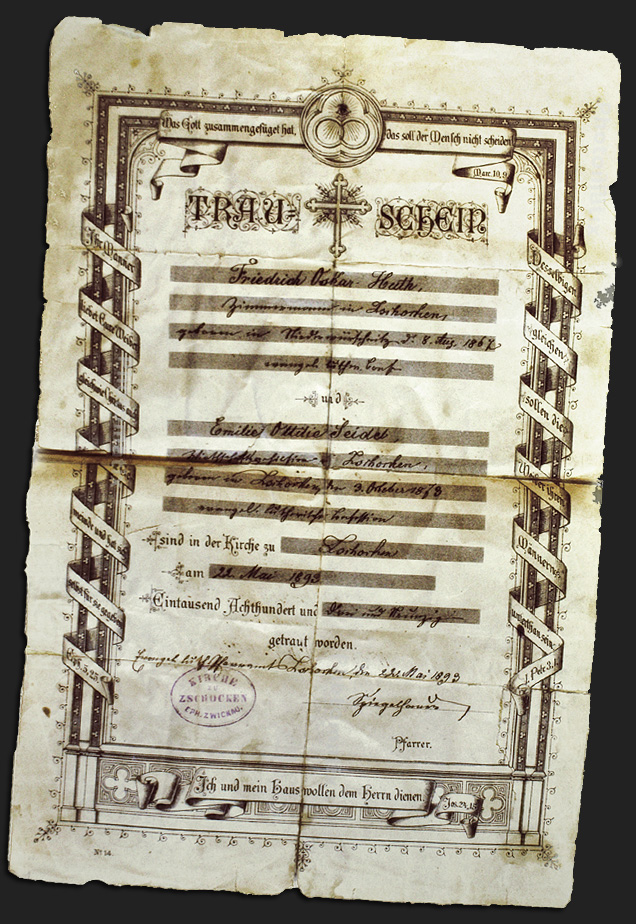 Was Gott zusammengefüget hat,
das soll der Mensch nicht scheiden
Marc. 10, 9.
TRAU-SCHEIN
Friedrich Oskar
Zimmermann in Zschocken,
geboren in d. 8. Aug. 1867
evangel. luthr. Conf.
und
Emilie Ottilie Seidel,
Zschocken,
geboren in Zschocken, den 3. October 1873
evangel. lutherische Confession
sind in der Kirche zu Zschocken
am 22. Mai 1893
Eintausend Achthundert und Drei und Neunzig
getraut worden.
Evangel. luth. Pfarramt Zschocken, den 22. Mai 1893
KIRCHE
ZU
ZSCHOCKEN
EPH. ZWICKAU.
Pfarrer.
Ihr Männer
liebet Eure Weiber
gleichwie
meinde und hat sich
selbst für sie gegeben
Eph. 5, 25.
Desselbigen
gleichen
sollen die
Weiber ihren
Männern
unterthan sein.
1. Petr. 3, 1.
Ich und mein Haus wollen dem Herrn dienen.
Jos. 24, 15.
No 14.